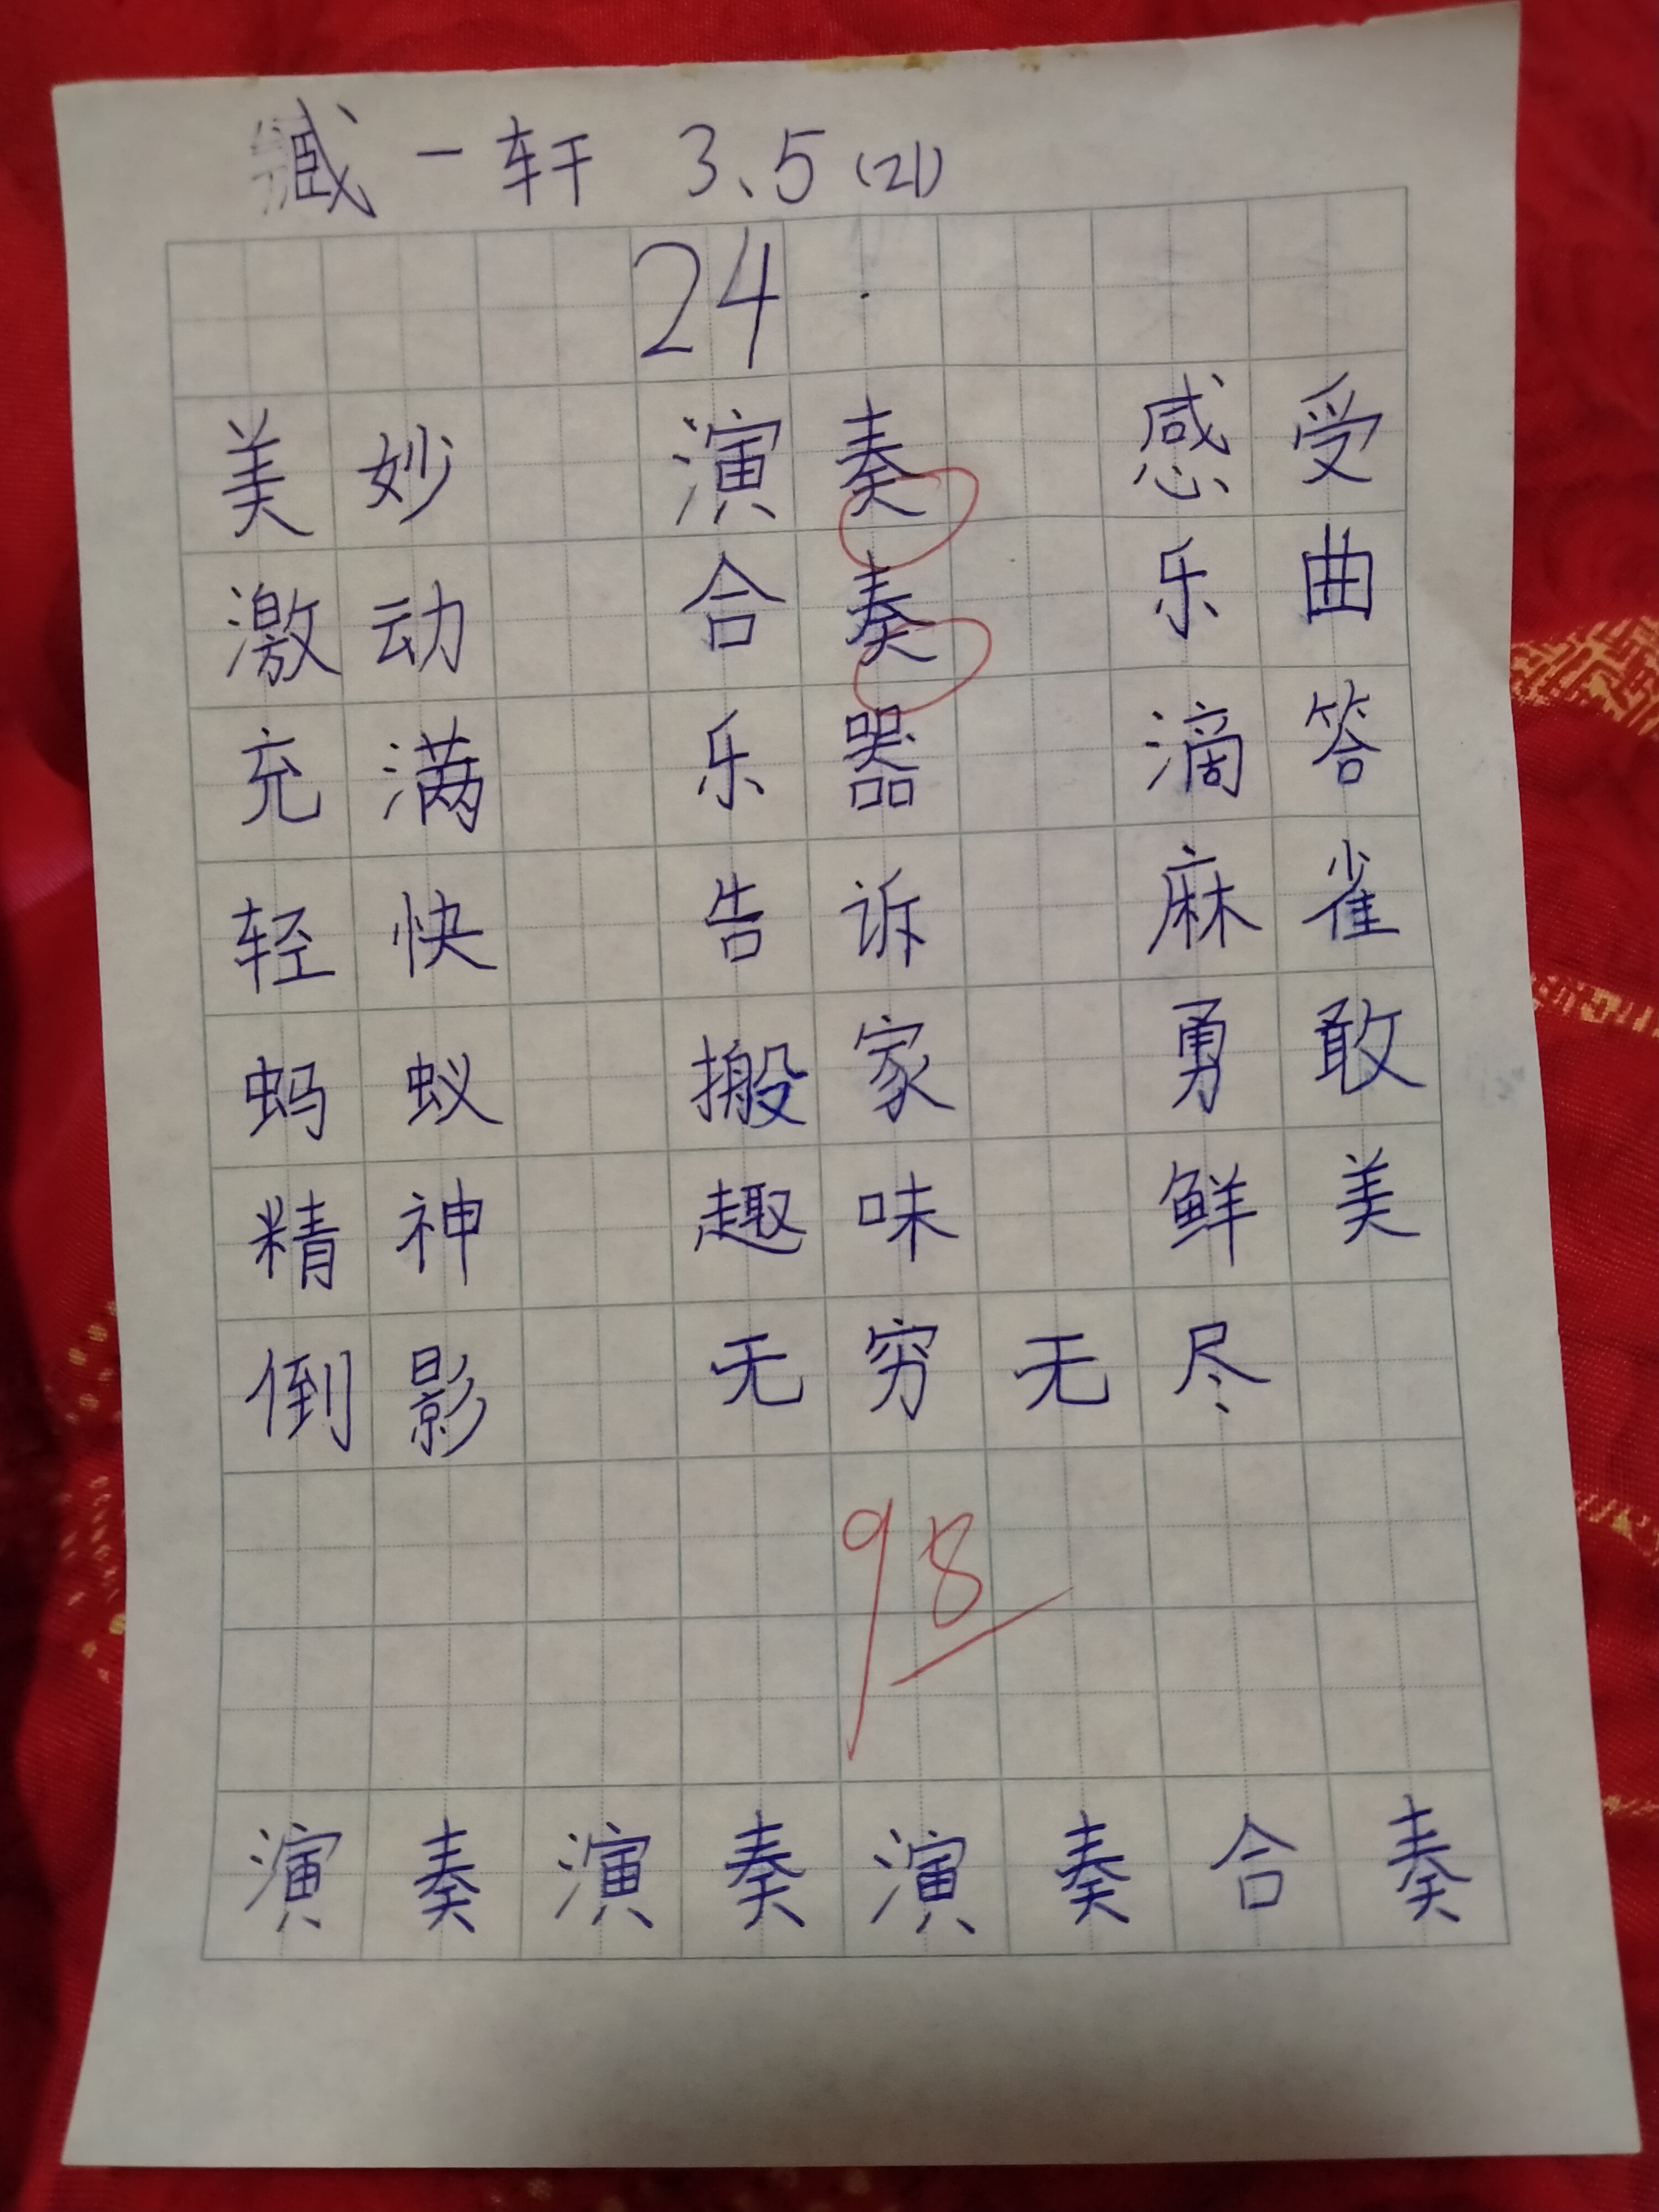 臧一轩 3.5 (21)
24
美妙 演奏 感受
激动 合奏 乐曲
充满 乐器 滴答
轻快 告诉 麻雀
蚂蚁 搬家 勇敢
精神 趣味 鲜美
倒影 无穷无尽
98
演奏演奏演奏合奏